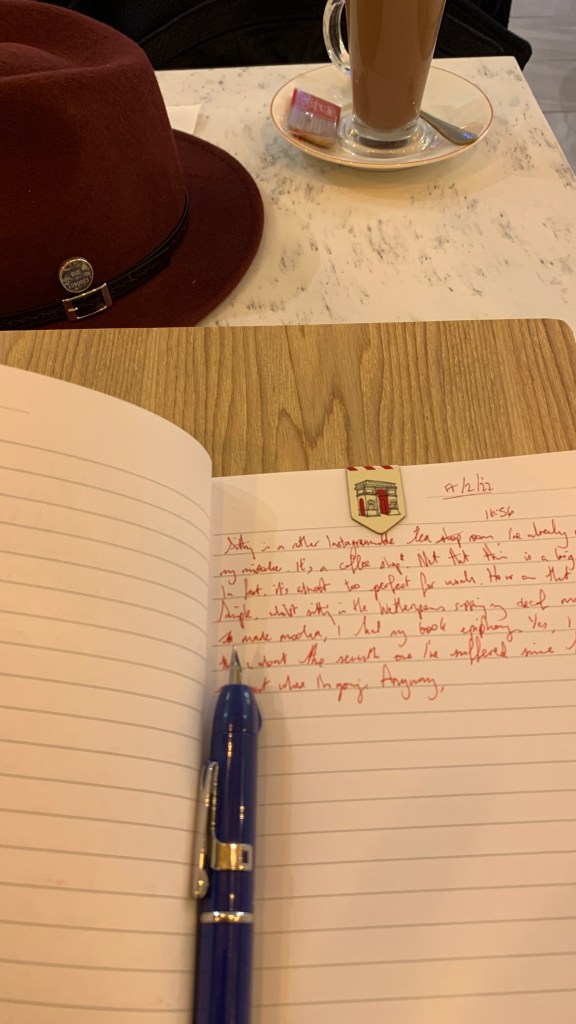 RUE
LONDRES
/2/22
16:56
Sitting in a rather Instagrammable tea shop room, I've already
my mistake. It's a coffee shop! Not that this is a big
In fact, it's almost too perfect for words. More on that
Simple, whilst sitting in the Wetherspoons sipping my decaf
make mocha, I had my book epiphany. Yes, I
about the seventh one I've suffered since
out where I'm going. Anyway,